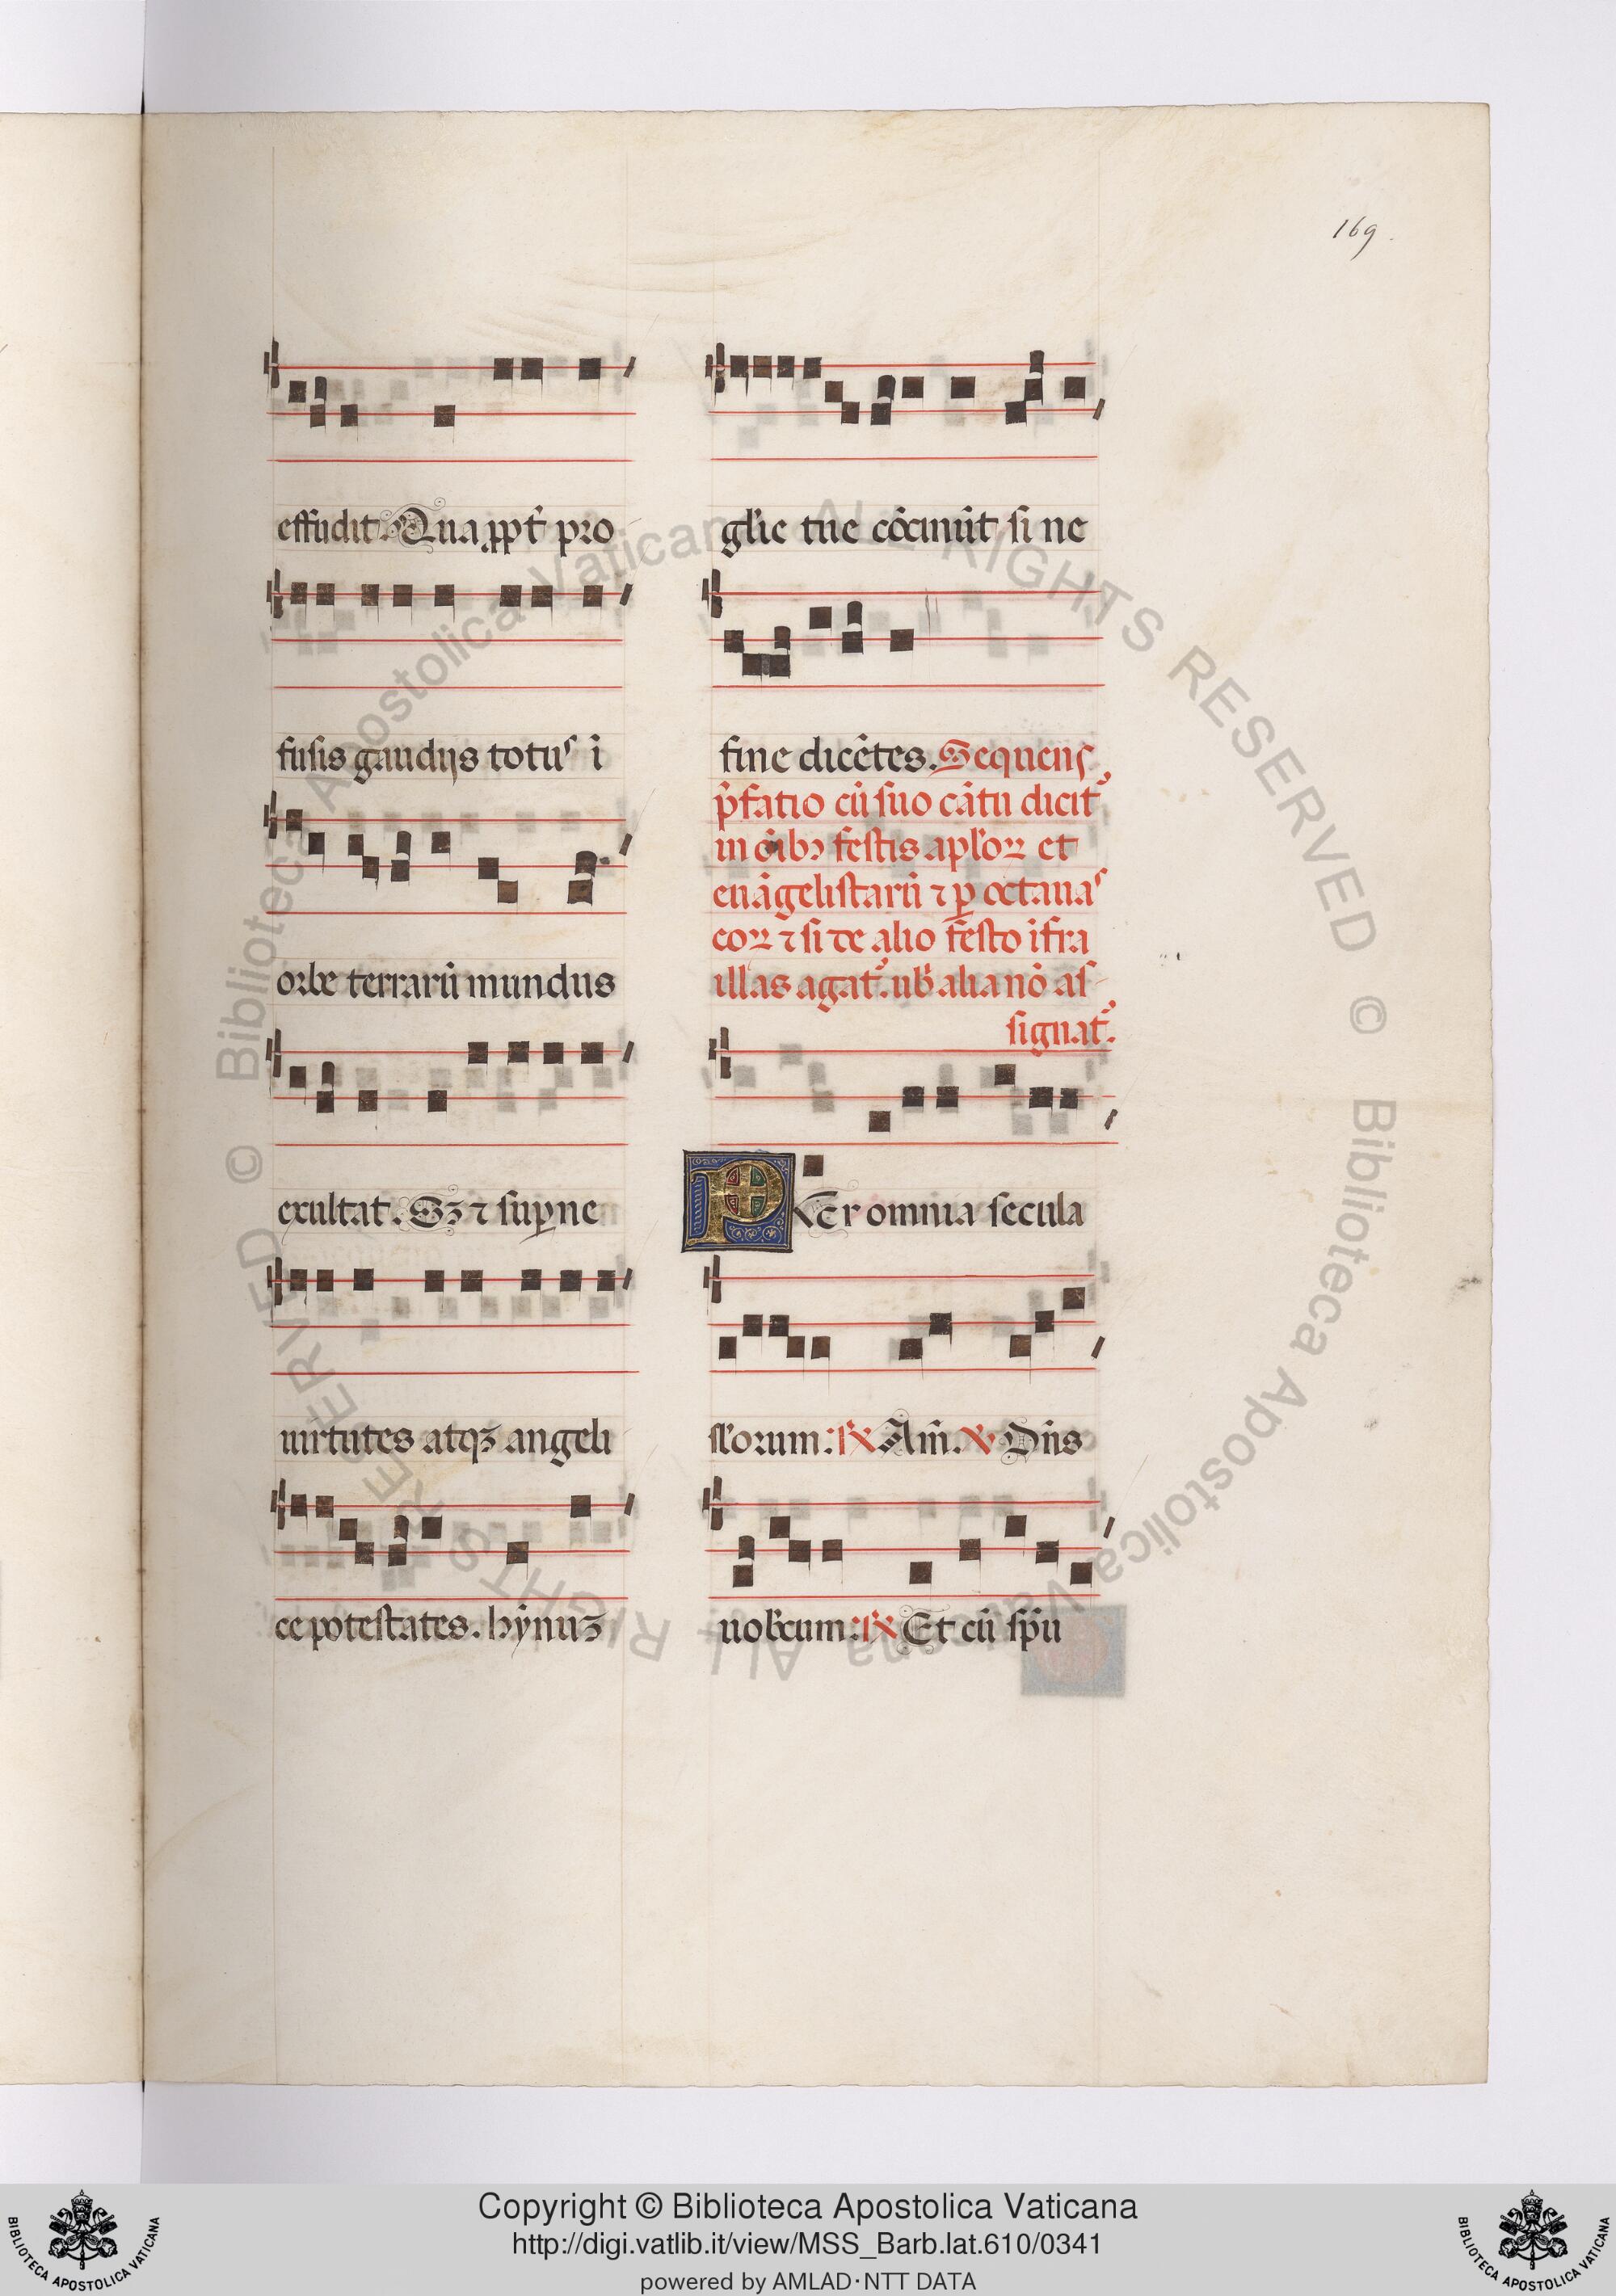 169.
effudit. Qua ꝓpt̉ pro
fusis gaudijs totus ĩ
orbe terrarũ mundus
exultat. Sꝫ ⁊ suꝑne
uirtutes atqꝫ angeli
ce potestates. hỹnuꝫ
gl̃ie tue cõcinũt si ne
fine dicẽtes. Sequens
p̃fatio cũ suo cãtu dicit̉
in oĩbꝫ festis apl̃oꝝ et
euãgelistarũ ⁊ ꝑ octauas
eoꝝ ⁊ si de alio festo ĩfra
illas agat̉. ub̃ alia nõ as
signat̉.
Per omnia secula
sl̃orum: ℟ Am̃. ℣ Dñs
uob̃cum: ℟ Et cũ sp̃u
Biblioteca Apostolica Vaticana ALL RIGHTS RESERVED ©
Biblioteca Apostolica Vaticana ALL RIGHTS RESERVED ©
Copyright © Biblioteca Apostolica Vaticana
http://digi.vatlib.it/view/MSS_Barb.lat.610/0341
powered by AMLAD·NTT DATA
BIBLIOTECA APOSTOLICA VATICANA
BIBLIOTECA APOSTOLICA VATICANA